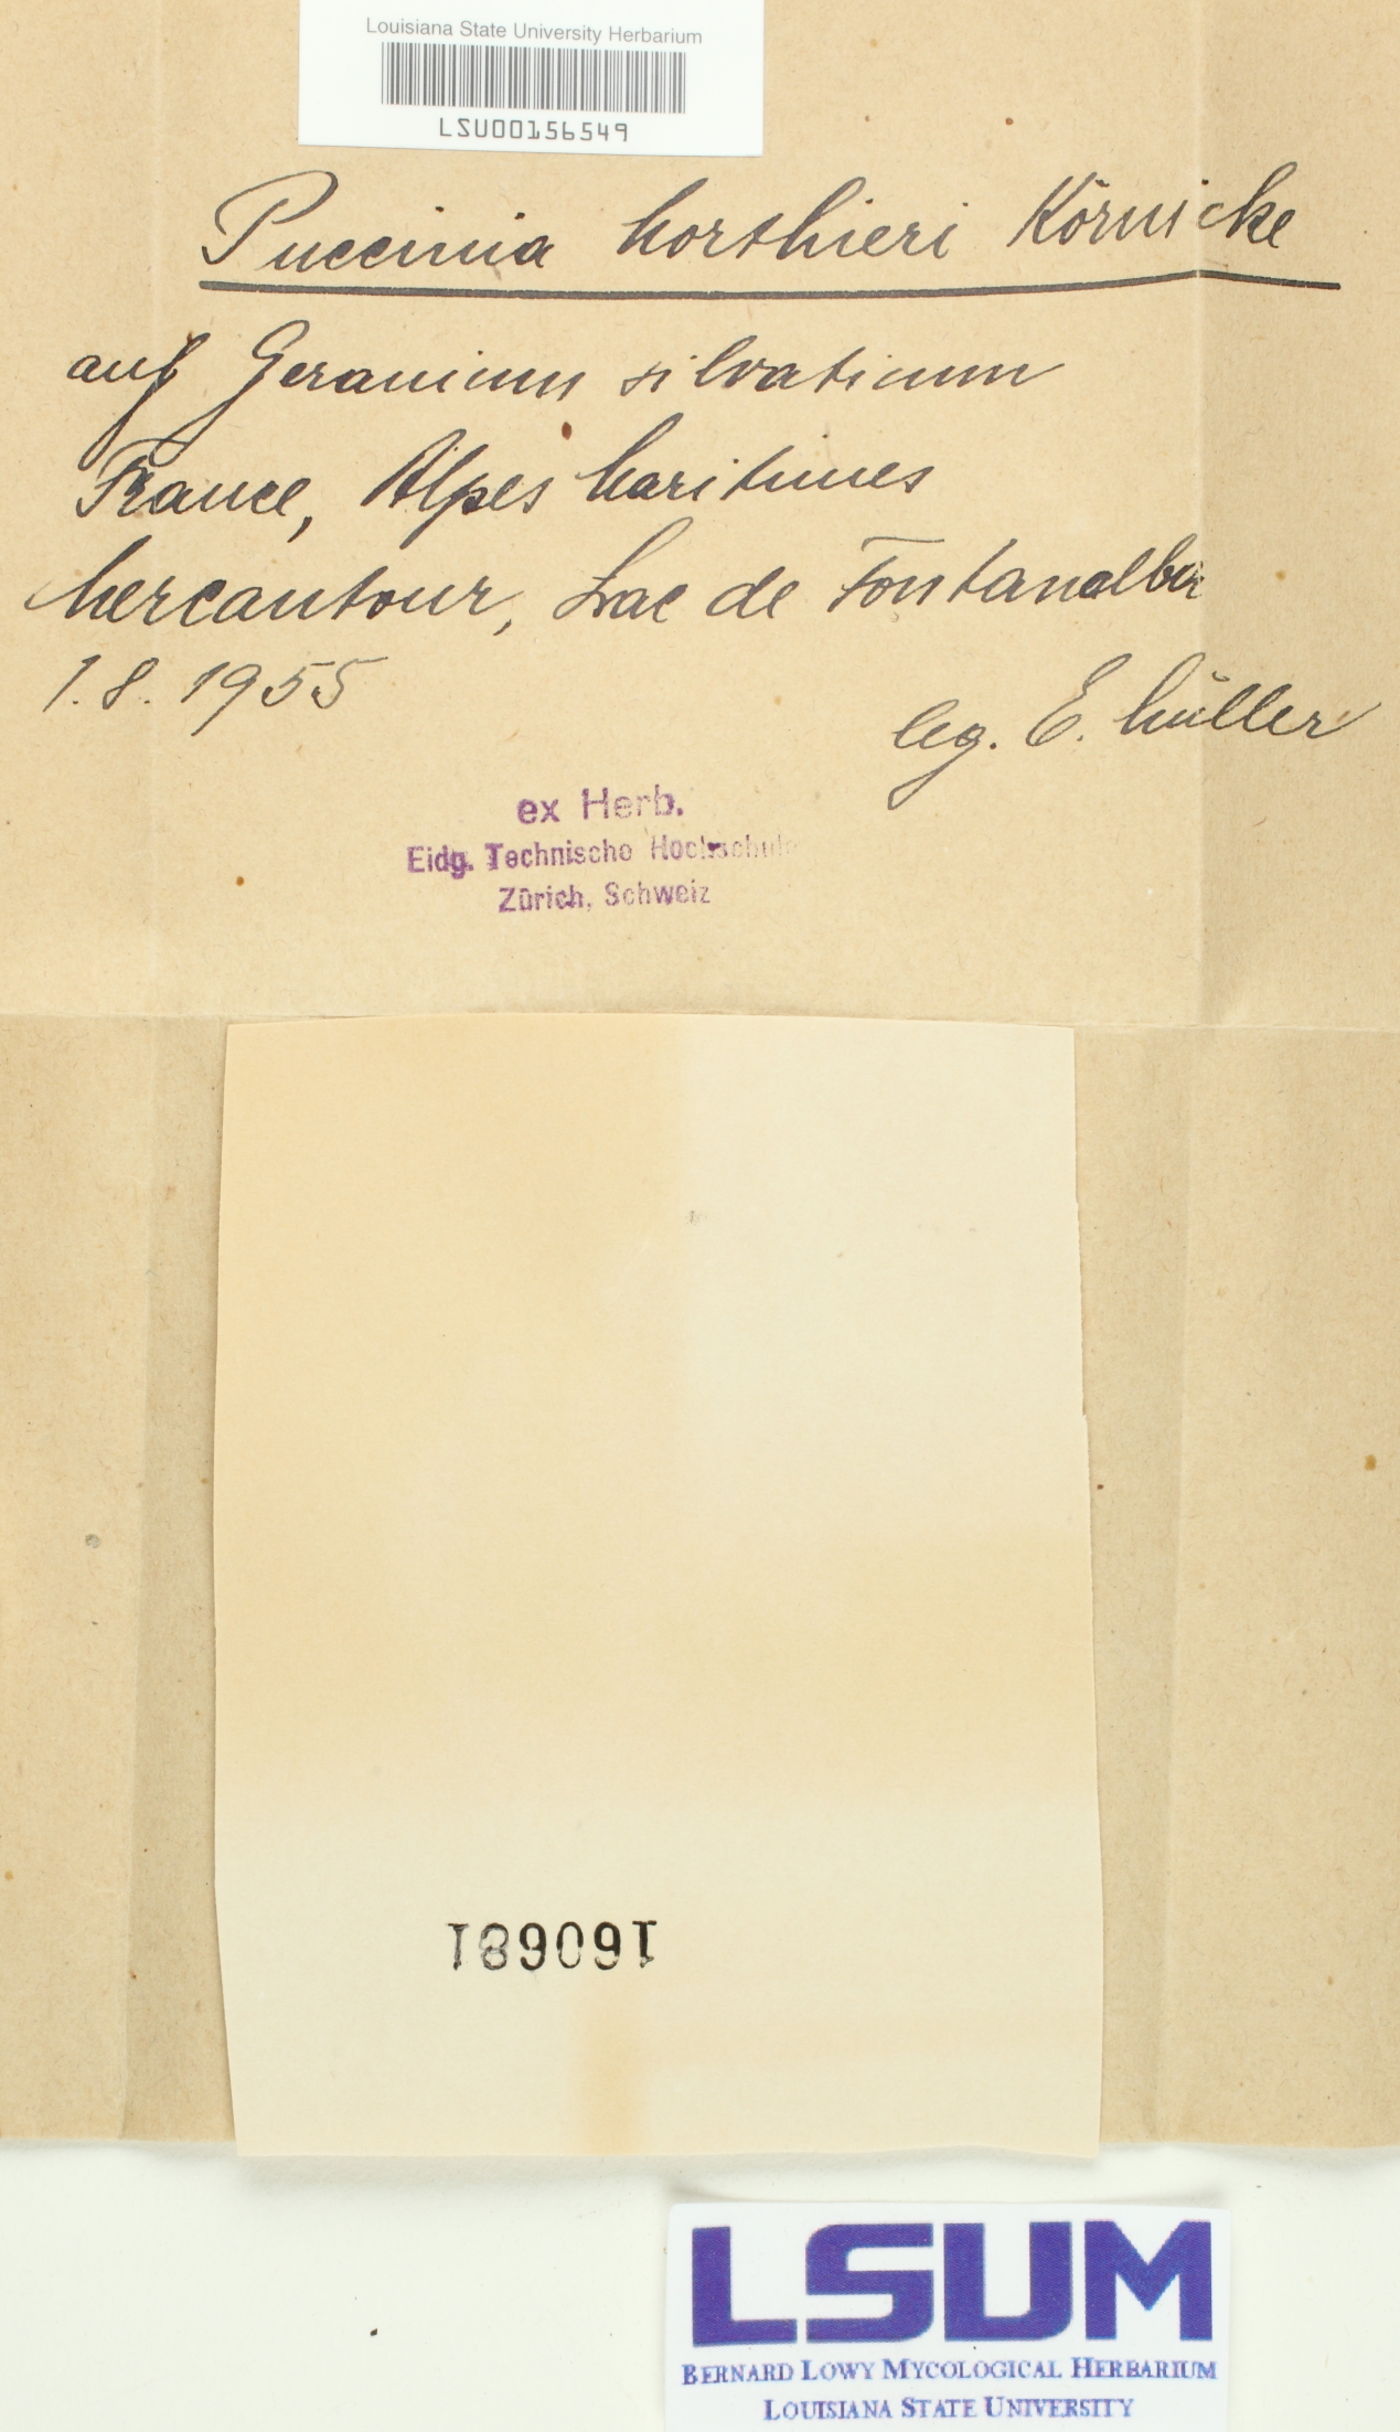 Louisiana State University Herbarium
LSU00156549
Puccinia Morthieri Körnicke
auf Geranium silvaticum
France, Alpes Maritimes
Mercantour, Lac de Fontanalba
1.8.1955
leg. E. Müller
ex Herb.
Eidg. Technische Hochschule
Zürich, Schweiz
160681
LSUM
BERNARD LOWY MYCOLOGICAL HERBARIUM
LOUISIANA STATE UNIVERSITY